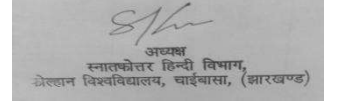 अध्यक्ष
स्नातकोत्तर हिन्दी विभाग,
कोल्हान विश्वविद्यालय, चाईबासा, (झारखण्ड)